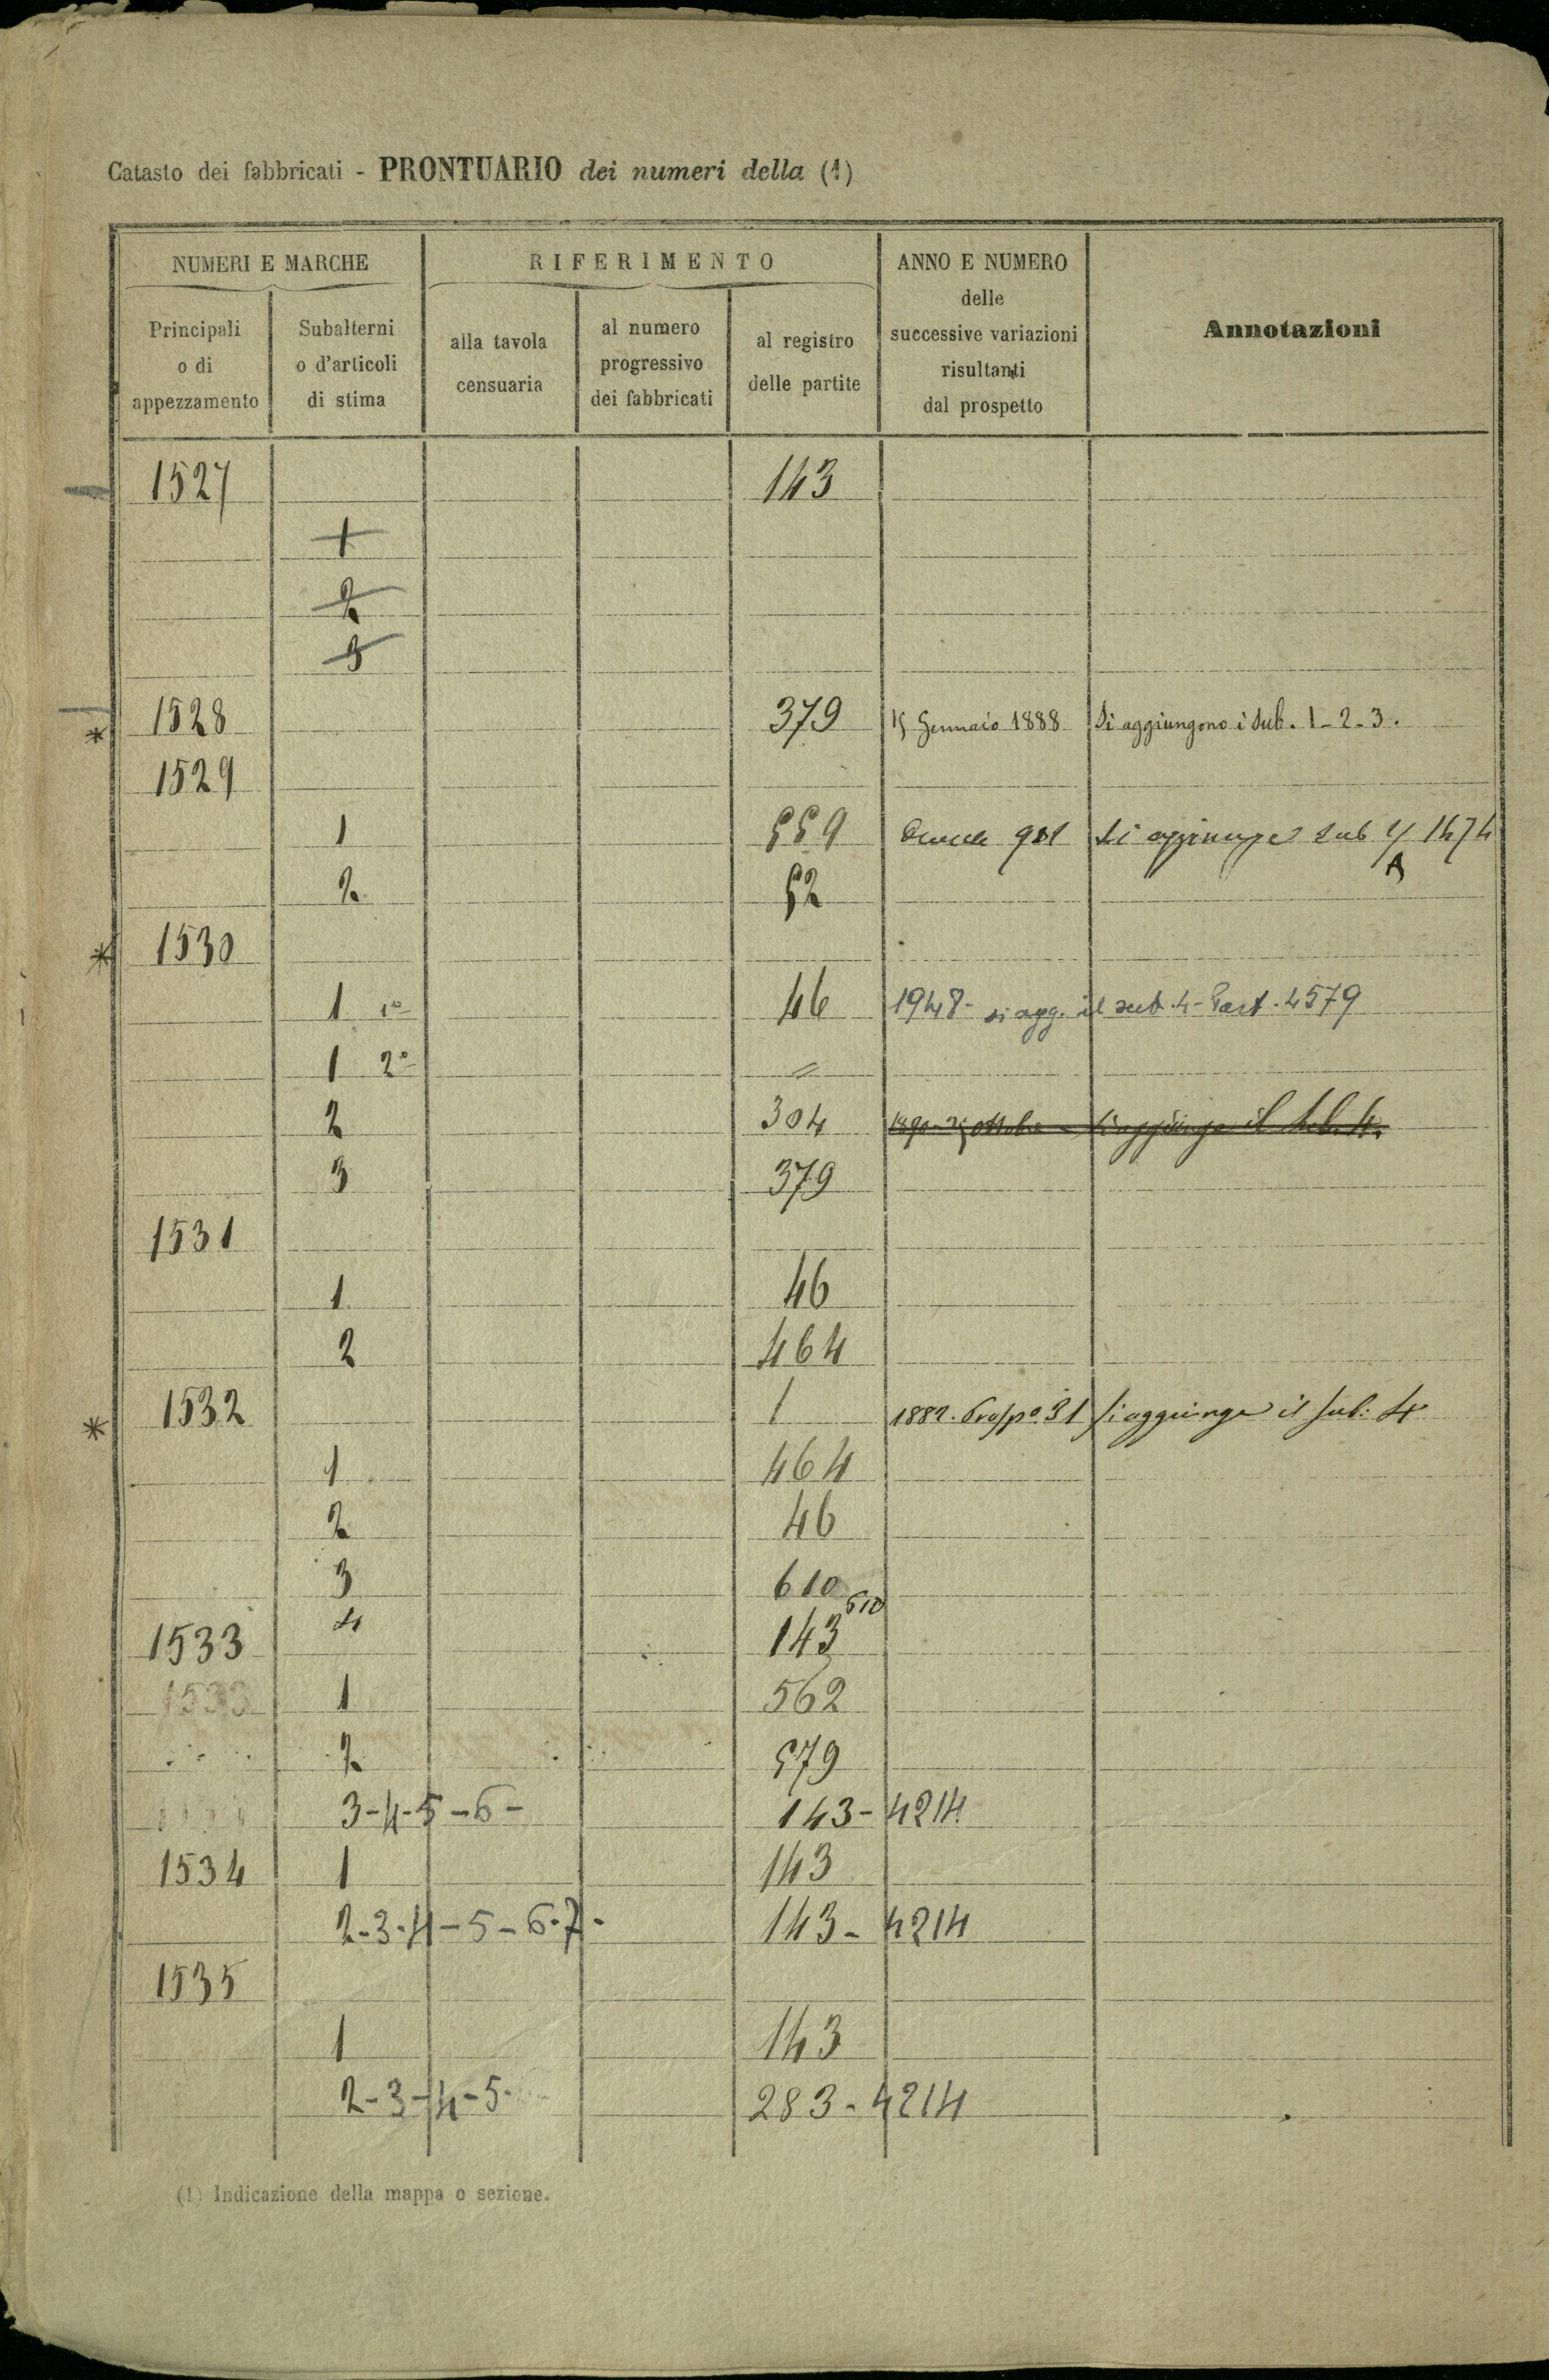 Catasto dei fabbricati - PRONTUARIO dei numeri della (1)
NUMERI E MARCHE
Principali o di appezzamento
Subalterni o d'articoli di stima
RIFERIMENTO
alla tavola censuaria
al numero progressivo dei fabbricati
al registro delle partite
ANNO E NUMERO delle successive variazioni risultanti dal prospetto
Annotazioni
1527 143
1
2
3
* 1528 379 15 Gennaio 1888 Si aggiungono i sub. 1-2-3.
1529
1 559 981 Si aggiunge sub 1474
A
2 52
* 1530
1 1° 46 1948- si agg. il sub. 4- Part. 4579
1 2° =
2 304 1890-25 ottobre - Si aggiunge il Sub. 4.
3 379
1531
1 46
2 464
* 1532 1 1882. Prosp° 31 Si aggiunge il sub: 4
1 464
2 46
3 610
4 610
1533 143
1533 1 562
2 579
3-4-5-6- 143-4214
1534 1 143
2-3-4-5-6-7- 143-4214
1535
1 143
2-3-4-5- 283-4214
(1) Indicazione della mappa o sezione.